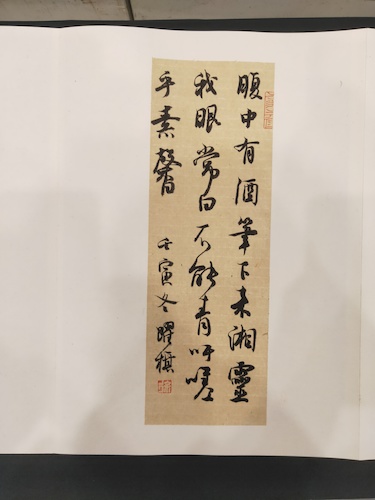 腹中有酒筆下来湘靈
我眼常白不能青吁嗟
乎素馨
壬寅冬曜